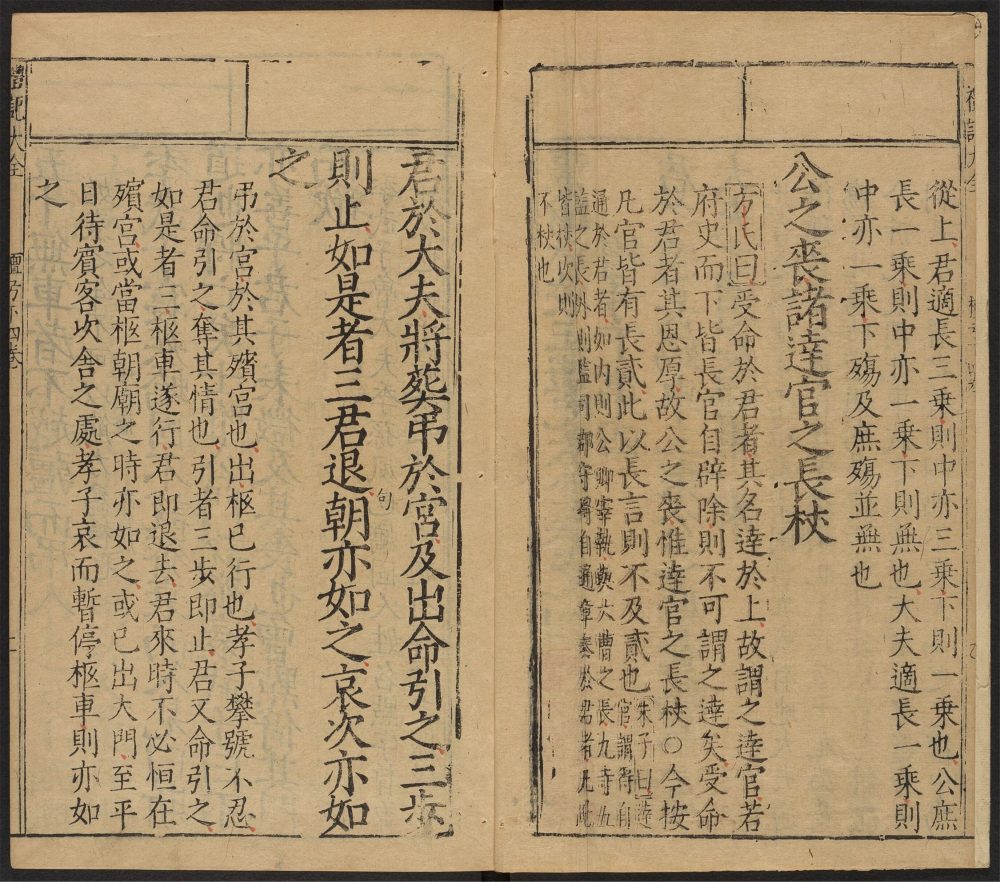 從上君適長三乘則中亦三乘下則一乘也公庶
長一乘則中亦一乘下則無也大夫適長一乘則
中亦一乘下殤及庶殤並無也
公之喪諸達官之長杖
方氏曰受命於君者其名達於上故謂之達官若
府史而下皆長官自辟除則不可謂之達矣受命
於君者其恩厚故公之喪惟達官之長杖○今按
凡官皆有長貳此以長言則不及貳也
朱子曰達
官謂得自
通於君者如内則公卿宰執與六曹之長九寺五
監之長外則監司郡守得自通章奏於君者凡此
皆杖次則
不杖也
禮記大全
檀弓下四卷
君於大夫將葬弔於宮及出命引之三步
則止如是者三君退朝亦如之哀次亦如
句
之
弔於宮於其殯宮也出柩已行也孝子攀號不忍
君命引之奪其情也引者三步即止君又命引之
如是者三柩車遂行君即退去君來時不必恒在
殯宮或當柩朝廟之時亦如之或已出大門至平
日待賓客次舍之處孝子哀而暫停柩車則亦如
之